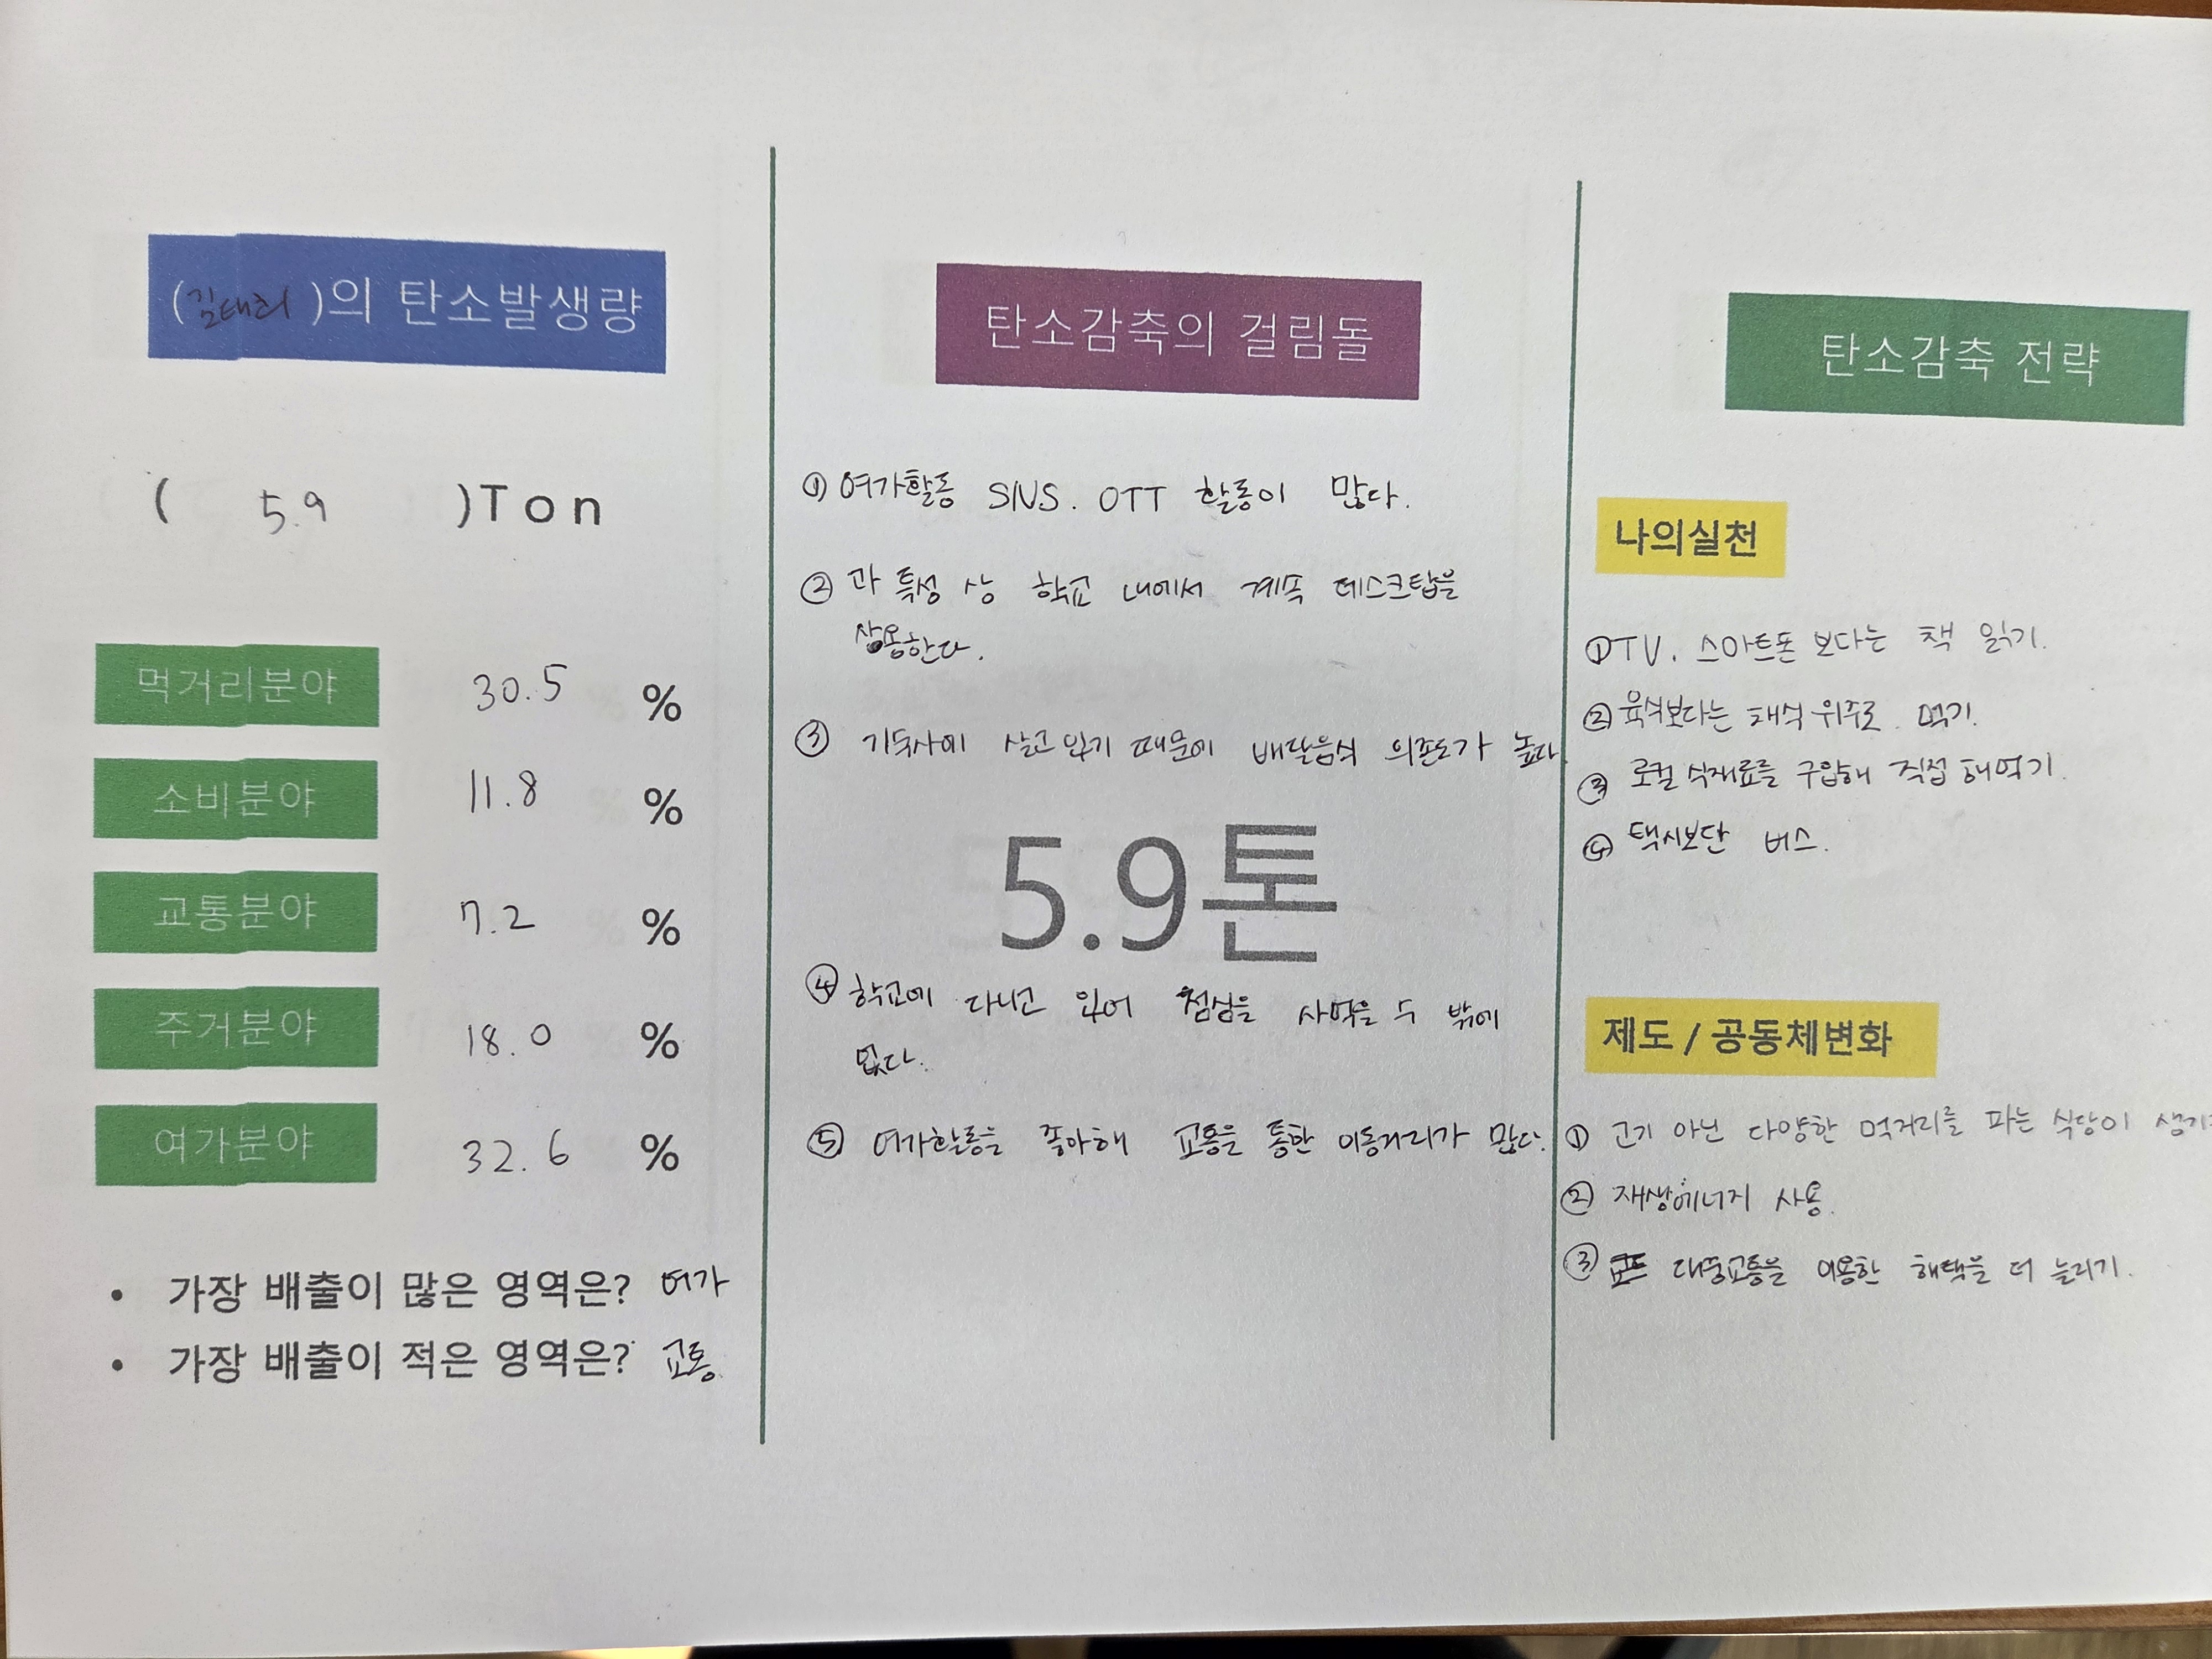 (김태희)의 탄소발생량
( 5.9 )Ton
먹거리분야 30.5 %
소비분야 11.8 %
교통분야 7.2 %
주거분야 18.0 %
여가분야 32.6 %
• 가장 배출이 많은 영역은? 여가
• 가장 배출이 적은 영역은? 교통
탄소감축의 걸림돌
① 여가활동 SNS. OTT 활동이 많다.
② 과 특성 상 학교 내에서 계속 데스크탑을
사용한다.
③ 기숙사에 살고 있기 때문에 배달음식 의존도가 높다
5.9톤
④ 학교에 다니고 있어 점심을 사먹을 수 밖에
없다.
⑤ 여가활동을 좋아해 교통을 통한 이동거리가 많다.
탄소감축 전략
나의실천
① TV. 스마트폰 보다는 책 읽기.
② 육식보다는 채식 위주로 먹기.
③ 로컬 식재료를 구입해 직접 해먹기.
④ 택시보단 버스.
제도 / 공동체변화
① 고기 아닌 다양한 먹거리를 파는 식당이
② 재생에너지 사용.
③ 대중교통을 이용한 혜택을 더 늘리기.